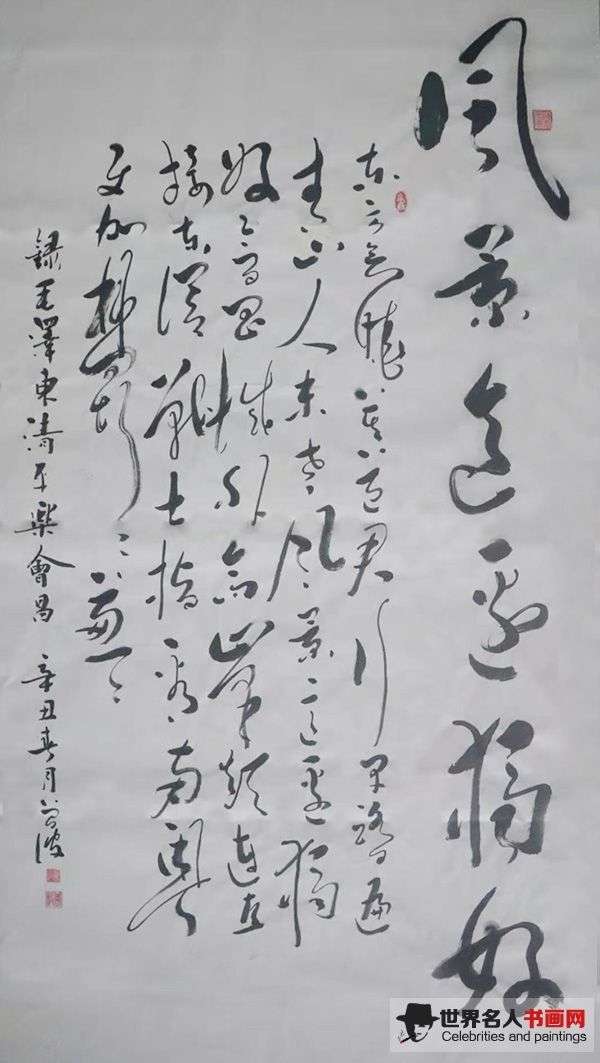 風景這邊獨好
東方欲曉莫道君行早踏遍
青山人未老風景這邊獨
好會昌城外高峰顛連直
接東溟戰士指看南粵
更加鬱鬱葱葱
錄毛澤東清平樂會昌 辛丑春月
世界名人书画网
Celebrities and paintings